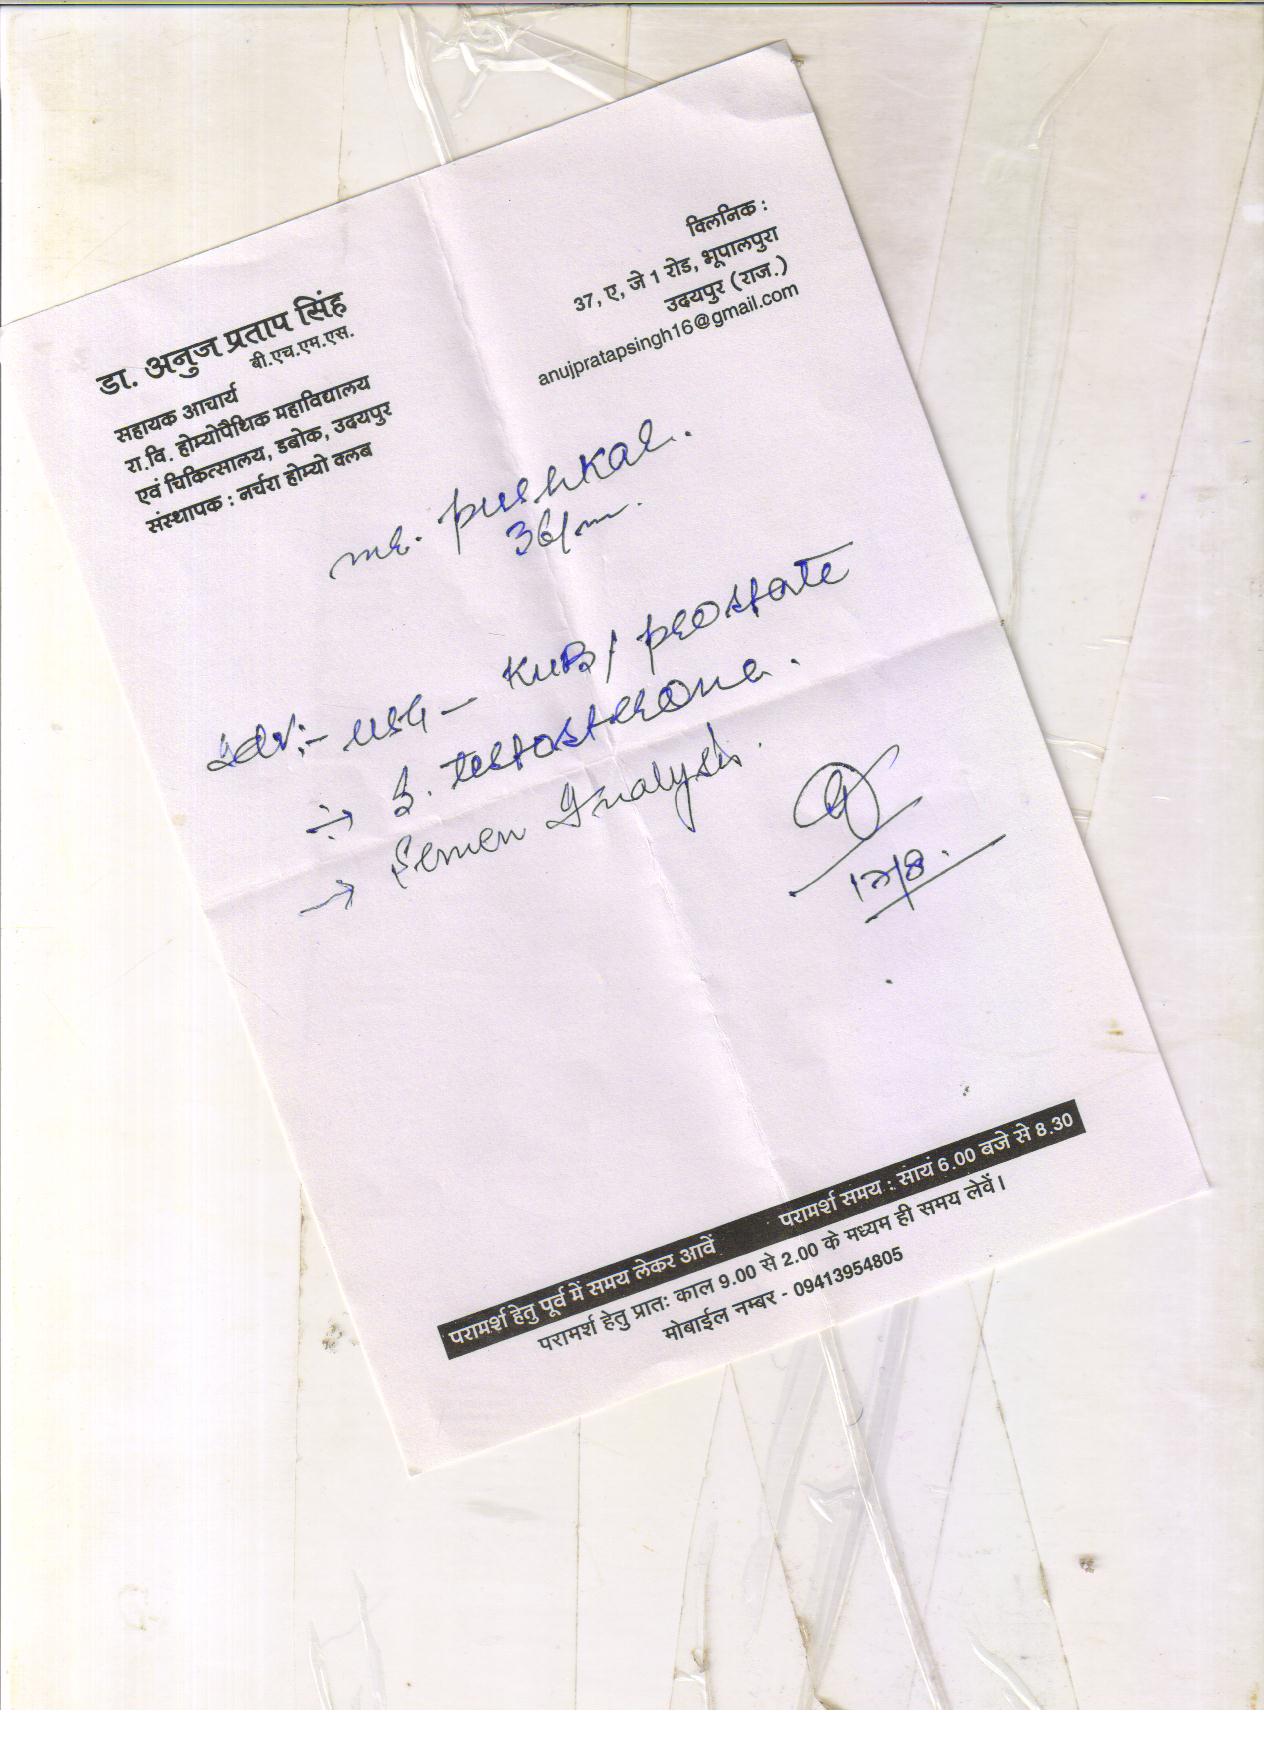 डा. अनुज प्रताप सिंह
बी.एच.एम.एस.
सहायक आचार्य
रा.वि. होम्योपैथिक महाविद्यालय
एवं चिकित्सालय, डबोक, उदयपुर
संस्थापक : नर्चरा होम्यो क्लब
क्लिनिक :
37, ए, जे 1 रोड, भूपालपुरा
उदयपुर (राज.)
anujpratapsingh16@gmail.com
Mr. Pushkar.
36/m.
Adv:- USG - KUB/ Prostate
→ S. Testosterone.
→ Semen Analysis.
परामर्श हेतु पूर्व में समय लेकर आवें परामर्श समय : सायं 6.00 बजे से 8.30
परामर्श हेतु प्रातः काल 9.00 से 2.00 के मध्यम ही समय लेवें।
मोबाईल नम्बर - 09413954805